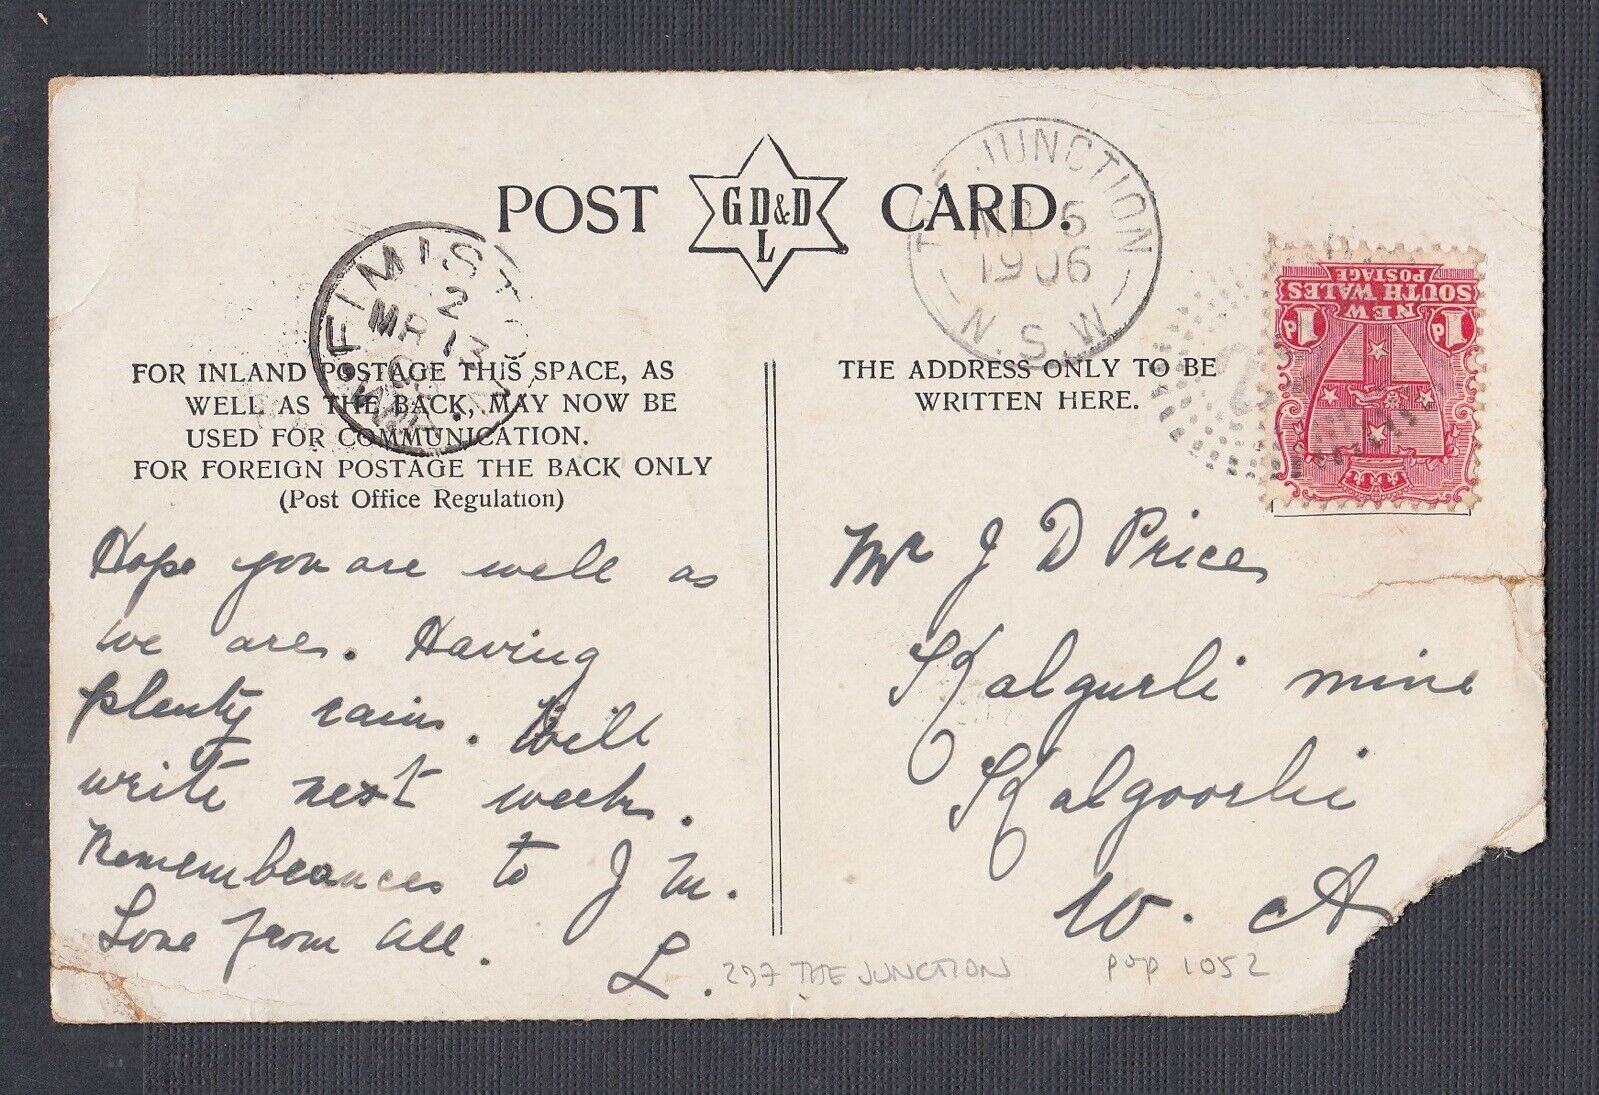 POST GD&D L CARD.
THE JUNCTION
MR 5
1906
N.S.W
FIMIST
2
MR 13
FOR INLAND POSTAGE THIS SPACE, AS
WELL AS THE BACK, MAY NOW BE
USED FOR COMMUNICATION.
FOR FOREIGN POSTAGE THE BACK ONLY
(Post Office Regulation)
THE ADDRESS ONLY TO BE
WRITTEN HERE.
NEW
SOUTH WALES
POSTAGE
1d 1d
Hope you are well as
we are. Having
plenty rain. Will
write next week.
Remembrances to J M.
Love from all.
L.
Mr J D Price
Kalgurli mine
Kalgoorlie
W. A
297 THE JUNCTION pop 1052